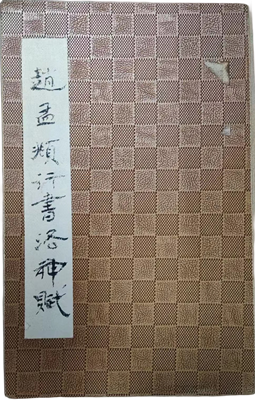 趙孟頫行書洛神賦